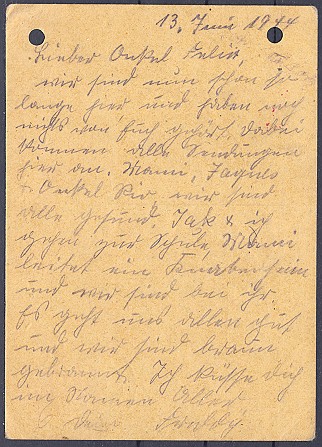 13. Juni 1944
Lieber Onkel Felix,
wir sind nun schon so
lange hier und haben noch
nichts von Euch gehört. Dabei
kommen alle Sendungen
hier an. Mami, Jaques
+ Onkel wir sind
alle gesund. Jak & ich
gehen zur Schule, Mami
leitet ein Knabenheim
und wir sind bei ihr.
Es geht uns allen gut
und wir sind braun
gebrannt. Ich küsse Dich
im Namen Aller
Dein Freddy.